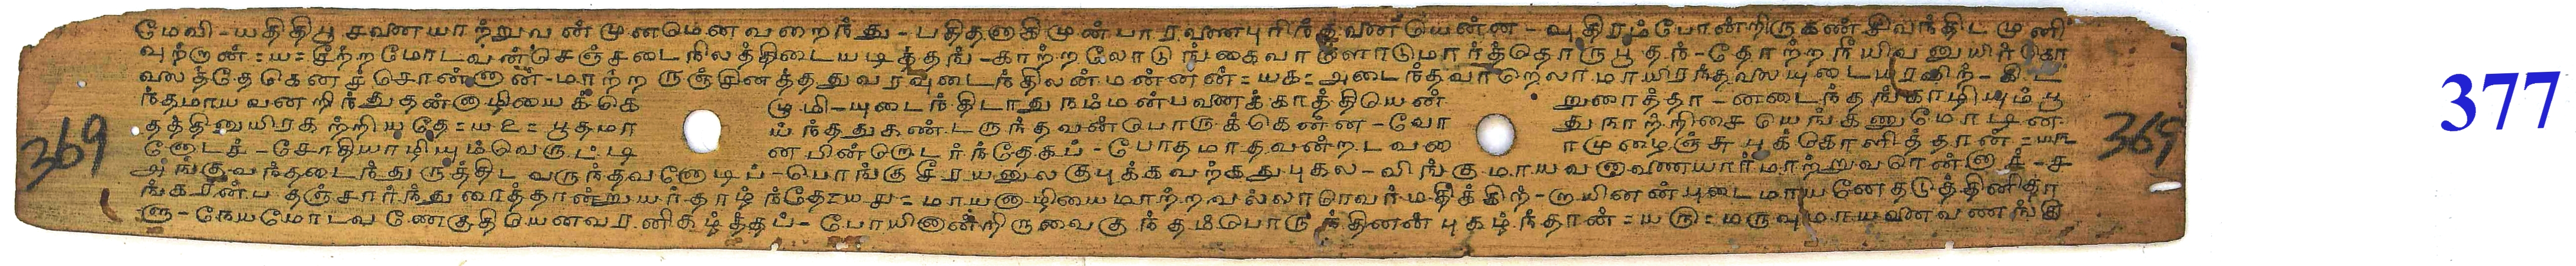 மேவி-யதிதிபூ சவண யாற்றுவ ன்முனமெனவறைந்து-பதிதனாகிமுன்பா ரவணபுரிந்தவண்டுயென்ன-வுதிரம்போன்றிருகண்சிவந்திட முனி
வுற்றான்=ய=சீற்றமோடவன்செஞ்சடைநிலத்திடையடித்தங்-காற்றலோடு ங்கைவாளொடுமார்த்தொருபூதந்-தோற்றநீயிவனுயிர்கொ
வலத்தேகெனச்சொன்னான்-மாற்ற ருஞ்சினத்ததுவரவுடைந்திலன்மன்னன்=யக=அடைந்தவர்றெலாமாயிரந்தவலயுடையரவிற்-கிட
ந்தமாயவனறிந்துதன்னாழியைக்கெ ழுமி-யுடைந்திடாதுநம்மன்பவணக்காத்தியென் றுரைத்தா-னடைந்தங்காழியும்பூ
தத்தினுயிரகற்றியதே=ய௨=பூதமா ய்ந்ததுகண்டருந்தவன்பொருக்கென்ன-வோ துநாற்றிசையெங்கணுமோடின
னோடச்-சோதியாழியும்வெருட்டி னபின்றொடர்ந்தேகப்-போதமாதவன்றடவரை முழைஞ்சுபுக்கொளித்தான்=ய௩
அங்குவந்தடைந்துருத்திட வருந்தவனோடிப்-பொங்குசீரயனுலகுபுக்கவற்கதுபுகல-விங்குமாயவனாணையார்மாற்றுவரென்னாச்-ச
ங்கரன்பதஞ்சார்ந்துரைத்தான்றுயர்தாழ்ந்தே=ய௪=மாயனாழியைமாற்றவல்லாரெவர்மதிக்கின்-றாயினன்புடைமாயனேதடுத்தினிதா
ளு-நேயமோடவணேகுதியெனவரனிகழ்த்தப்-போயினான்றிருவைகுந்தம்பொருந்தினன்புகழ்ந்தான்=ய௫=மருவுமாயவனவணங்கி
369
369
377